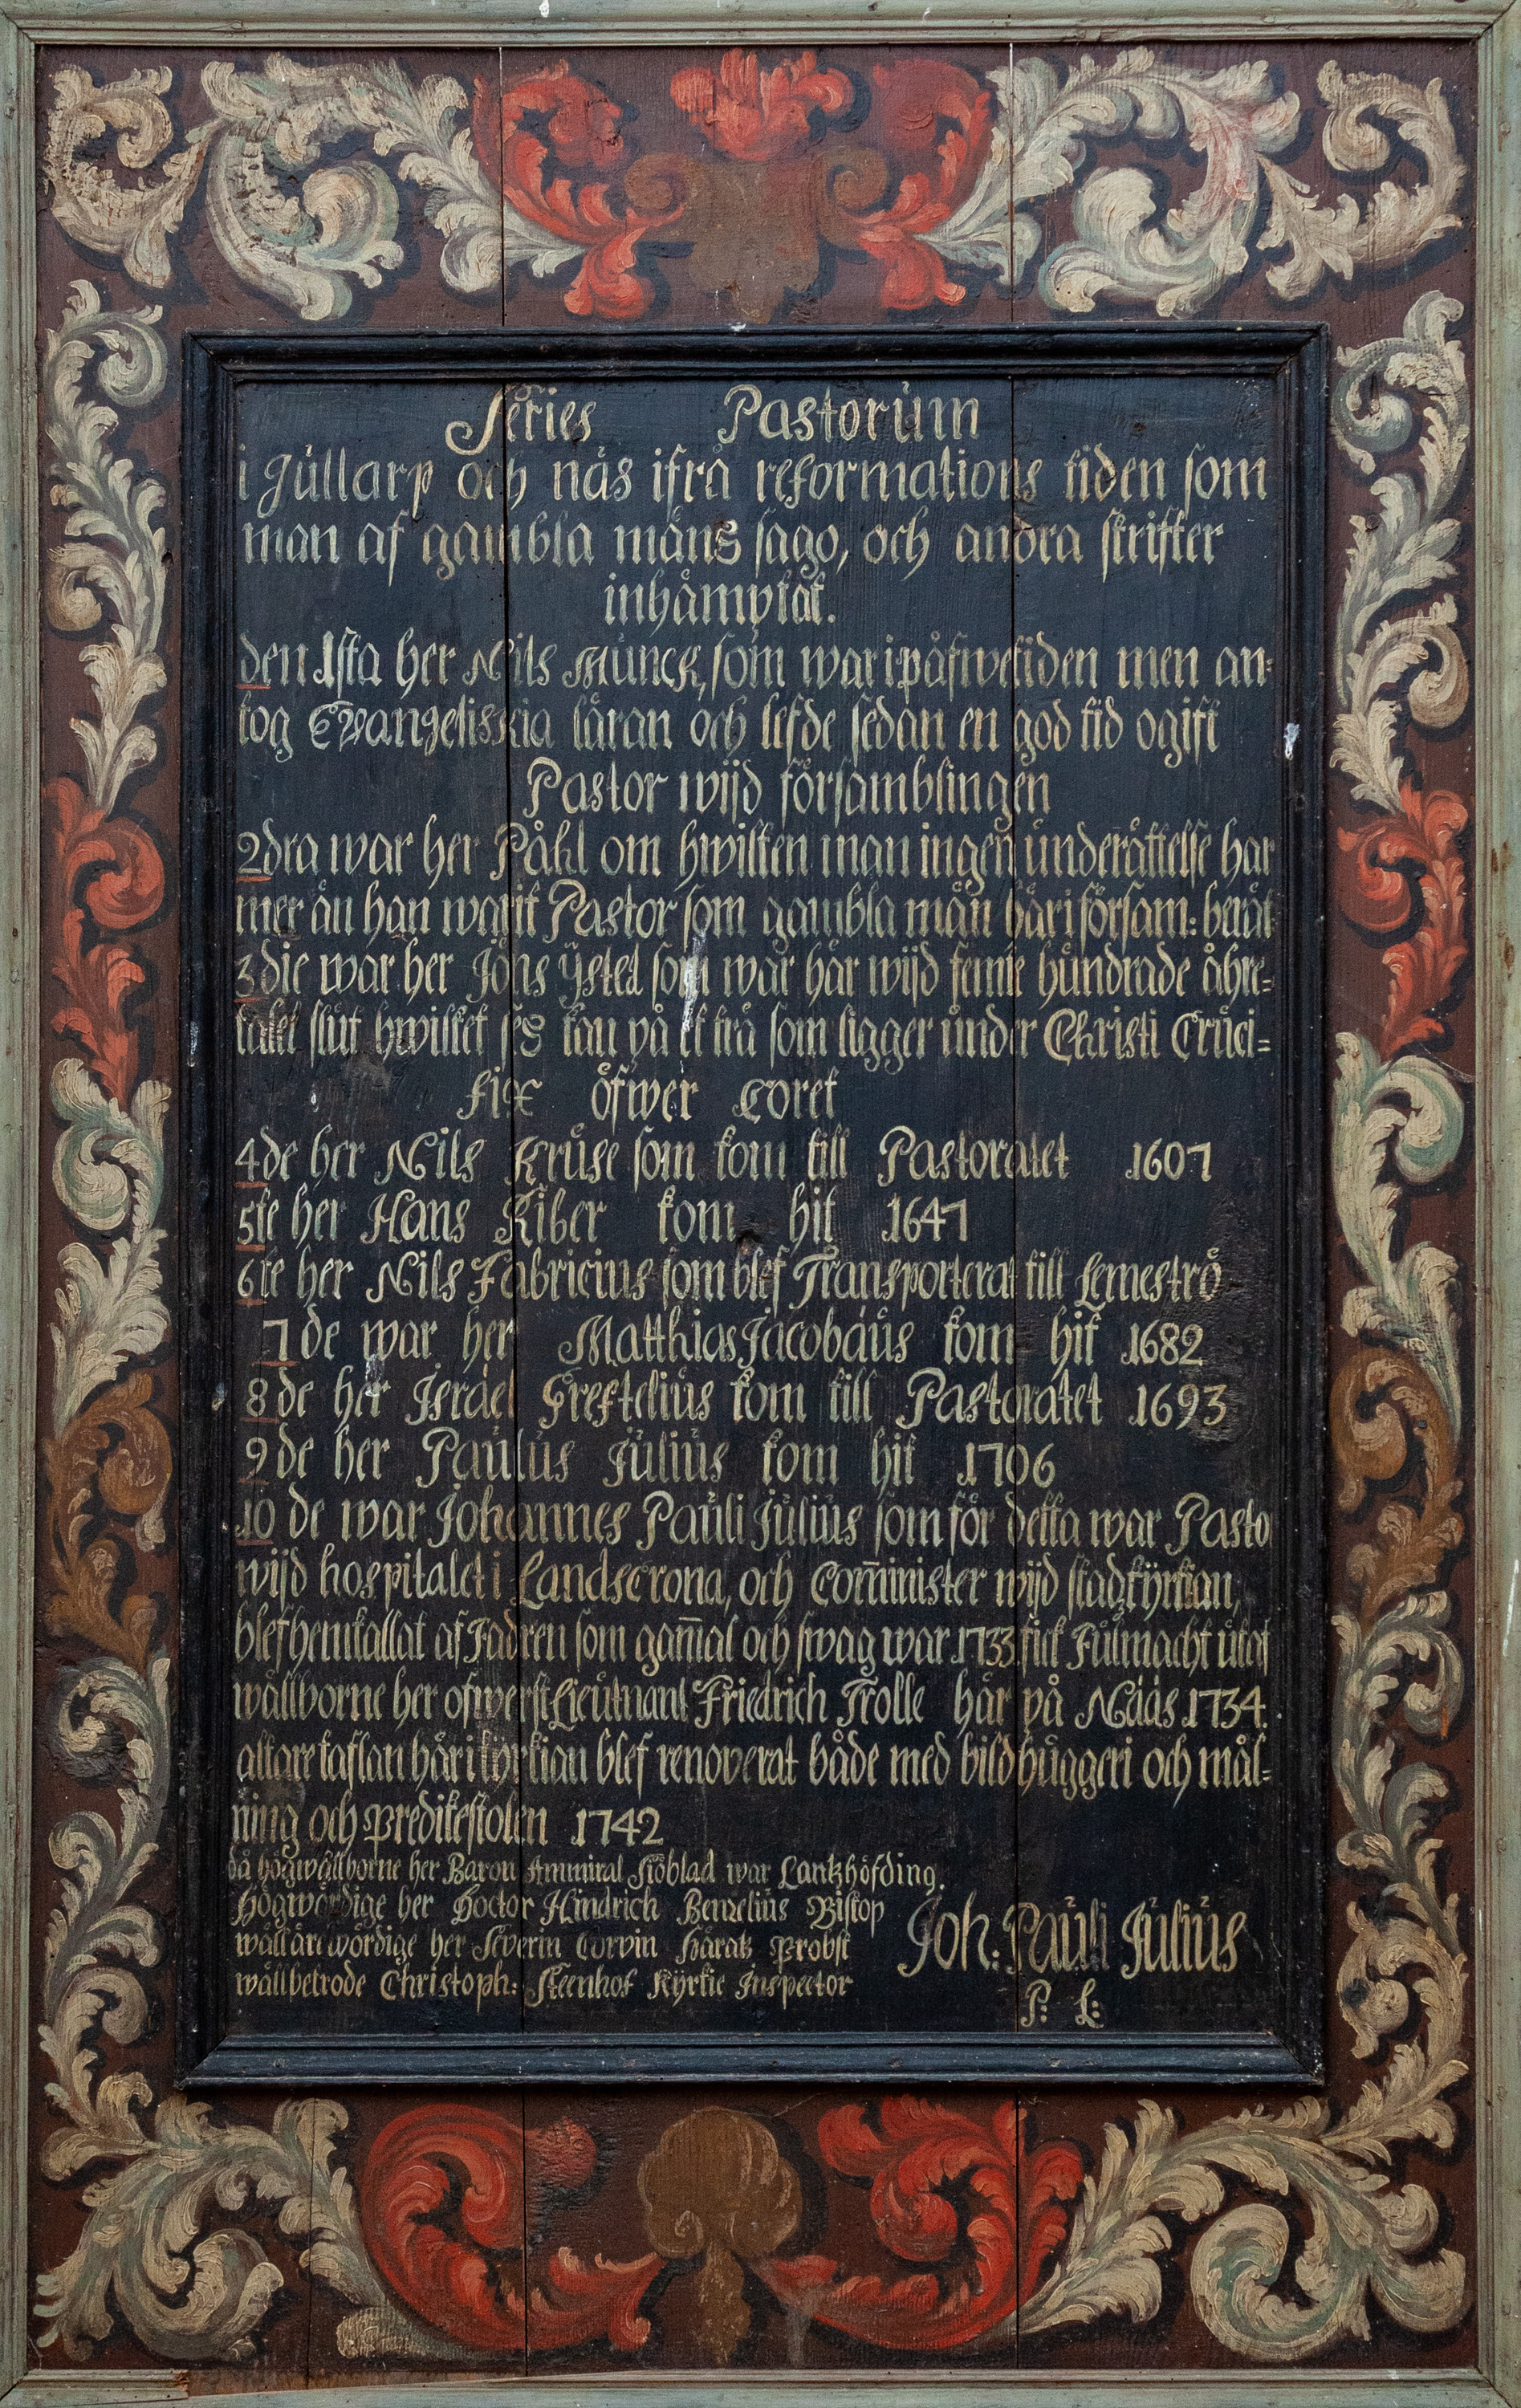 Series Pastorum
i Gullarp och näs ifrå reformations tiden som
man af gambla mäns sago, och andra skrifter
inhämptat.
den 1sta her Nils Munck, som war i påfwetiden men an=
tog Evangeliskia läran och lefde sedan en god tid ogift
Pastor wijd församblingen
2dra war her Påhl om hwilken man ingen underättelse har
mer än han warit Pastor som gambla män här i försam: berät
3die war her Jöns Ysted som war här wijd femte hundrade åhre=
talet slut hwilket ses kan på et trä som ligger under Christi Cruci=
fix öfwer Coret
4de her Nils Kruse som kom till Pastoratet 1607
5te her Hans Riber kom hit 1647
6te her Nils Fabricius som blef Transporterat till Lemeströ
7de war her Matthias Jacobäus kom hit 1682
8de her Israel Greftelius kom till Pastoratet 1693
9de her Paulus Julius kom hit 1706
10de war Johannes Pauli Julius som för detta war Pasto
wijd hospitalet i Landscrona, och Com̄inister wijd stadzkyrkian,
blef hemkallat af Fadren som gam̄al och swag war 1733 fick Fulmacht utaf
wällborne her ofwerstLieutnant Friedrich Trolle här på Nääs 1734.
altaretaflan här i kyrkian blef renoverat både med bildhuggeri och mål=
ning och predikestolen 1742
då högwällborne her Baron Ammiral Siöblad war Lantzhöfding.
Högwördige her Doctor Hindrich Benzelius Biskop
wällärewördige her Severin Corvin Häratz Probst
wällbetrode Christoph: Steenhof Kyrkie Inspector
Joh: Pauli Julius
P: L: